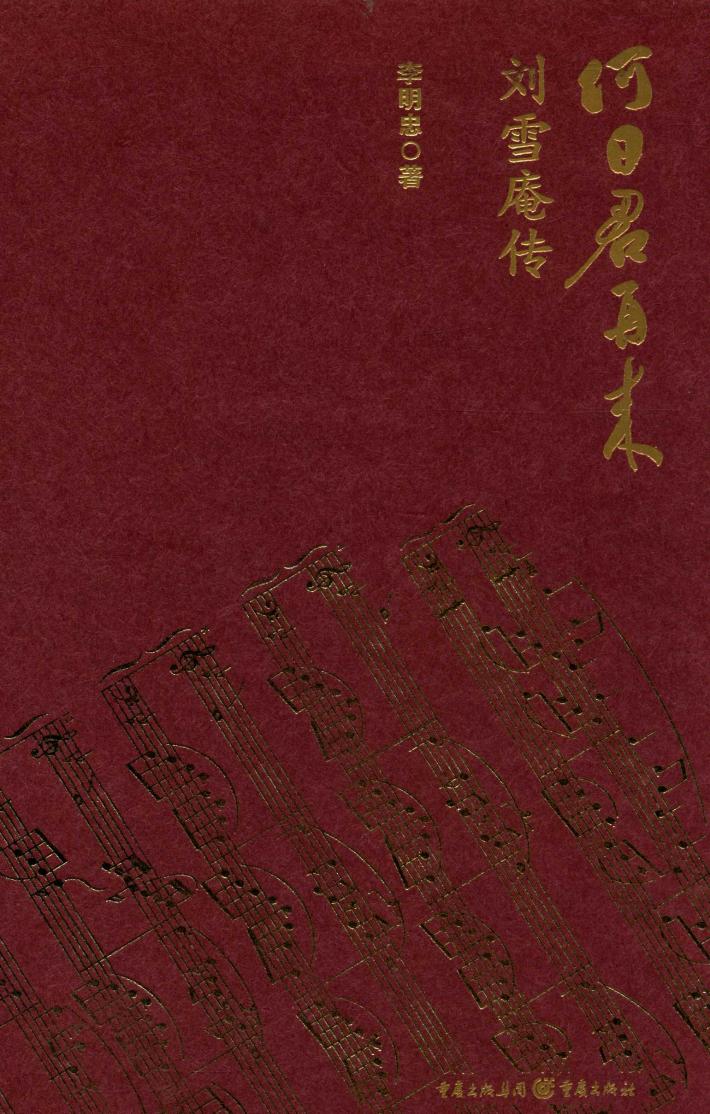 何日君再来
刘雪庵传
李明忠○著
重庆出版集团 重庆出版社